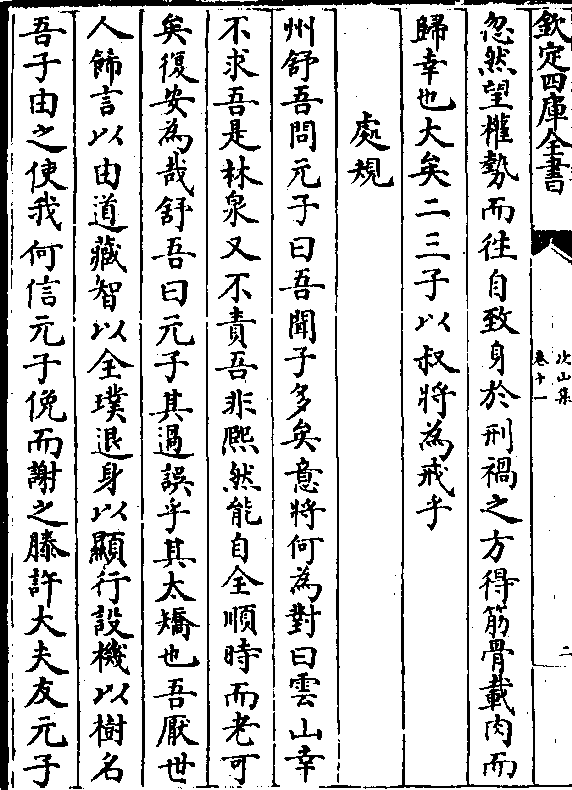 欽定四庫全書
次山集
卷十一
二
忽然望權勢而往自致身於刑禍之方得筋骨載肉而
歸幸也大矣二三子以叔將為戒乎
處規
州舒吾問元子曰吾聞子多矣意將何為對曰雲山幸
不求吾是林泉又不責吾非熈然能自全順時而老可
矣復安為哉舒吾曰元子其過誤乎其太矯也吾厭世
人飾言以由道藏智以全璞退身以顯行設機以樹名
吾子由之使我何信元子俛而謝之滕許大夫友元子